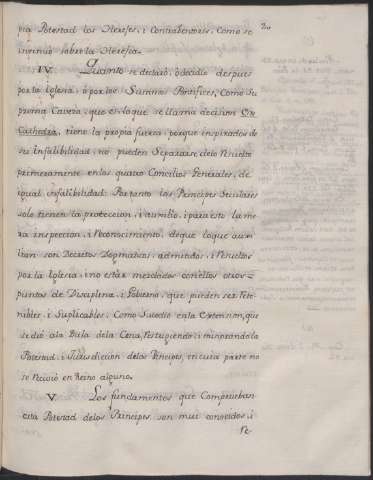 pia Potestad los Hereses, i Contraventores, Como se
insinuò sobre la Heresia.
IV. Quanto se declarò, ò decidiò despues
por la Iglesia, ò por los Sumos Pontifices, Como Su
prema Caveza, que es loque se llama decision Ex
Cathedra, tiene la propia fuerza, porque inspirados de
su Infalibilidad, no pueden Separarse, delo Resuelto
primeramente enlos quatro Concilios Generales, de
igual infalibilidad: Portanto los Principes Seculares
solo tienen la proteccion, i aumilio, i para esto la me
ra inspeccion, i Reconocimiento, deque loque auxi
lian son Decretos Dogmaticos, admitidos, i Resueltos
por la Iglesia, i no estàr mezclados conellos otros
puntos de Disciplina, i Govierno, que pueden ser Rete
nibles, i Suplicables, Como Sucediò enla Extension, que
se diò ala Bula dela Cena, i minorandola
Potestad, i Jurisdiccion delos Principes, encuia parte no
se Reciviò en Reino alguno.
V. Los fundamentos que Comprueban
esta Potestad delos Principes, son mui conocidos, i
Re